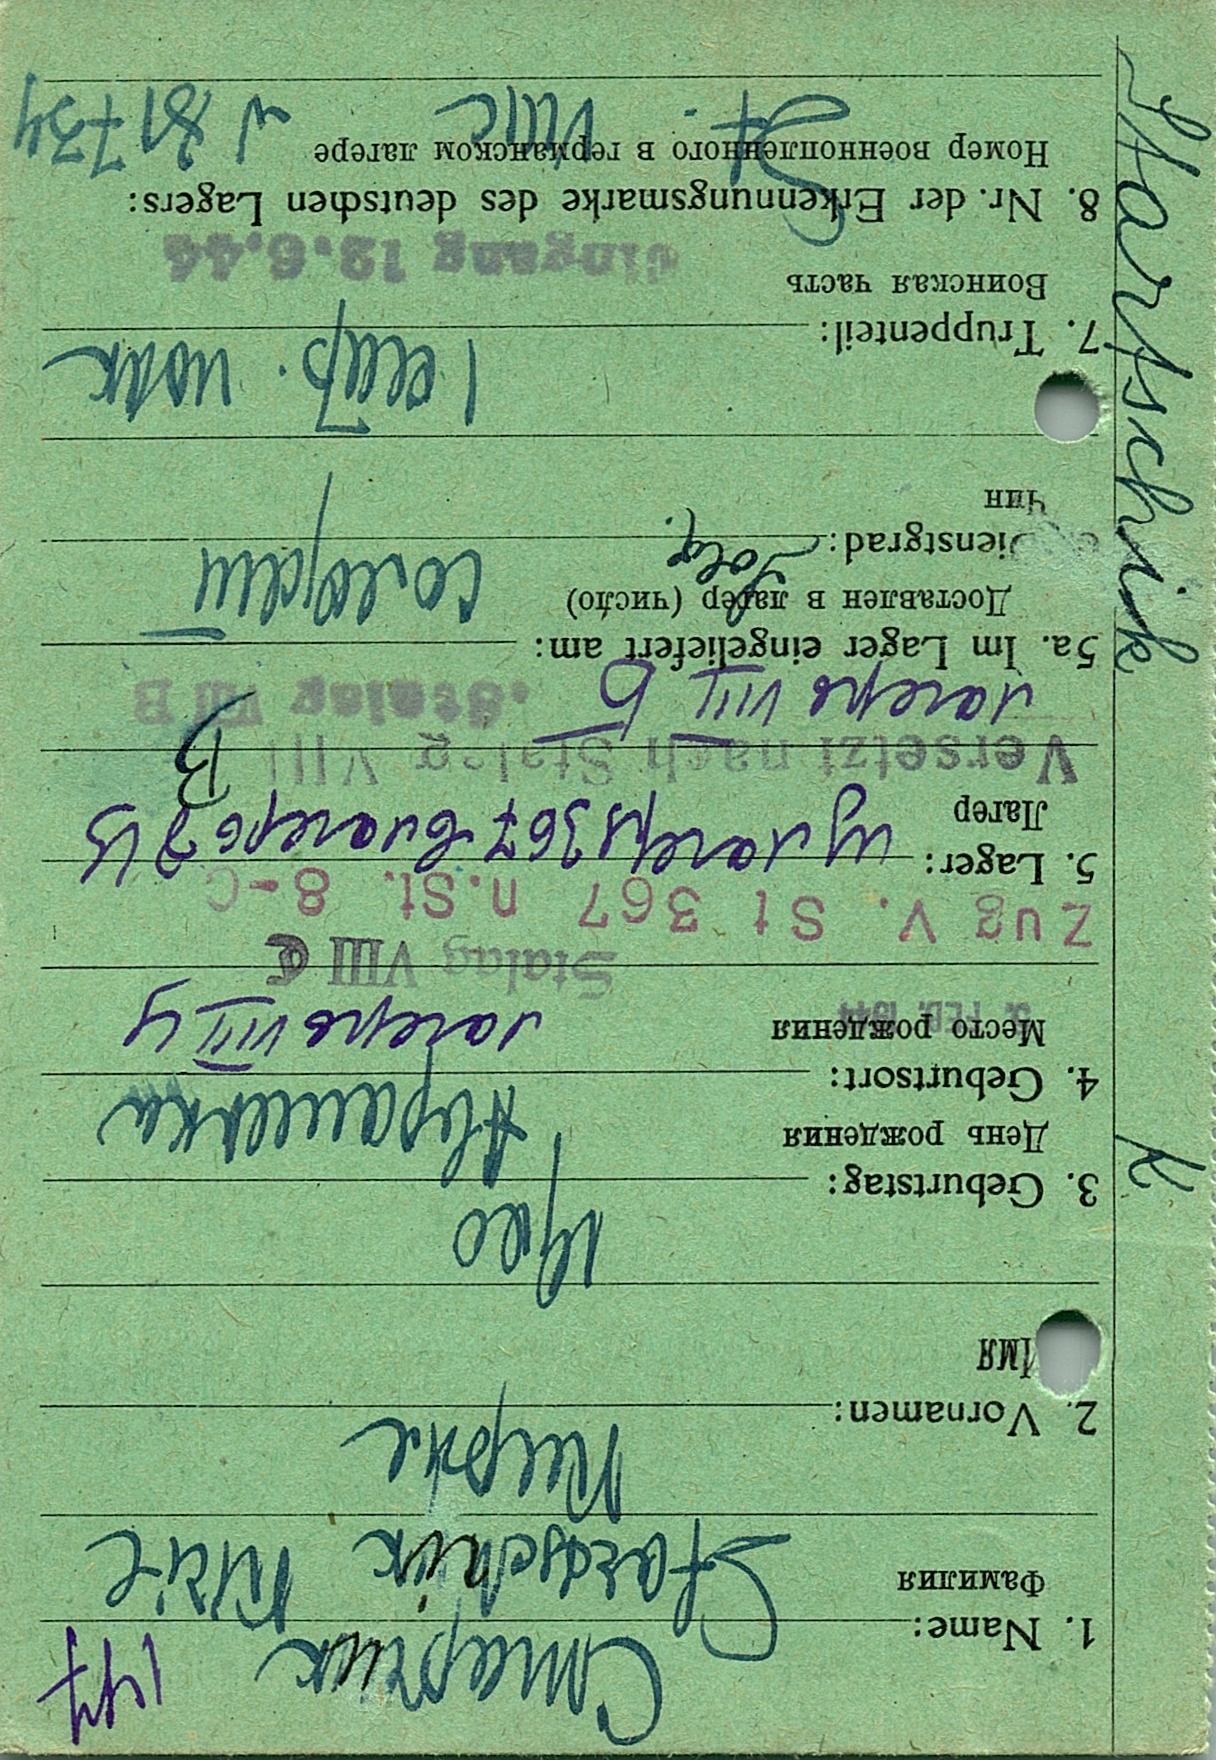 1947
Старчик
1. Name:
Фамилия
Startschik
Пирхе
2. Vornamen:
Имя
3. Geburtstag:
День рождения
4. Geburtsort:
Место рождения
лагерь VIII Ц
2. FEB. 1944
Stalag VIII C
Zug V. St 367 n.St. 8-C
5. Lager:
Лагер
из лагеря 367 в лагерь
B
Versetzt nach Stalag VIII
лагерь VIII Б
Stalag III B
5a. Im Lager eingeliefert am:
Доставлен в лагер (число)
солдат
Dienstgrad: Sold.
Чин
1 полк
7. Truppenteil:
Воинская часть
Eingang 12.6.44
8. Nr. der Erkennungsmarke des deutschen Lagers:
Номер военнопленного в германском лагере
St. VIII C
81734
Startschik
K